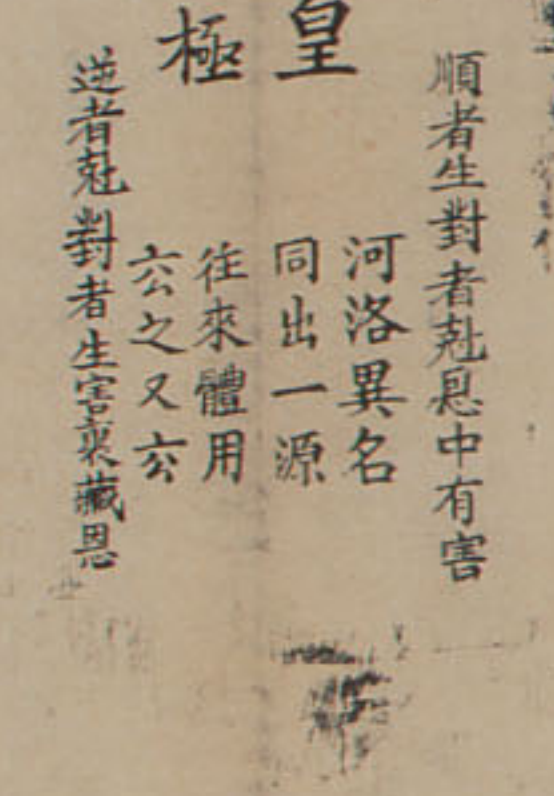 皇極
順者生對者尅恩中有害
河洛異名
同出一源
往來體用
玄之又玄
逆者尅對者生害裏藏恩